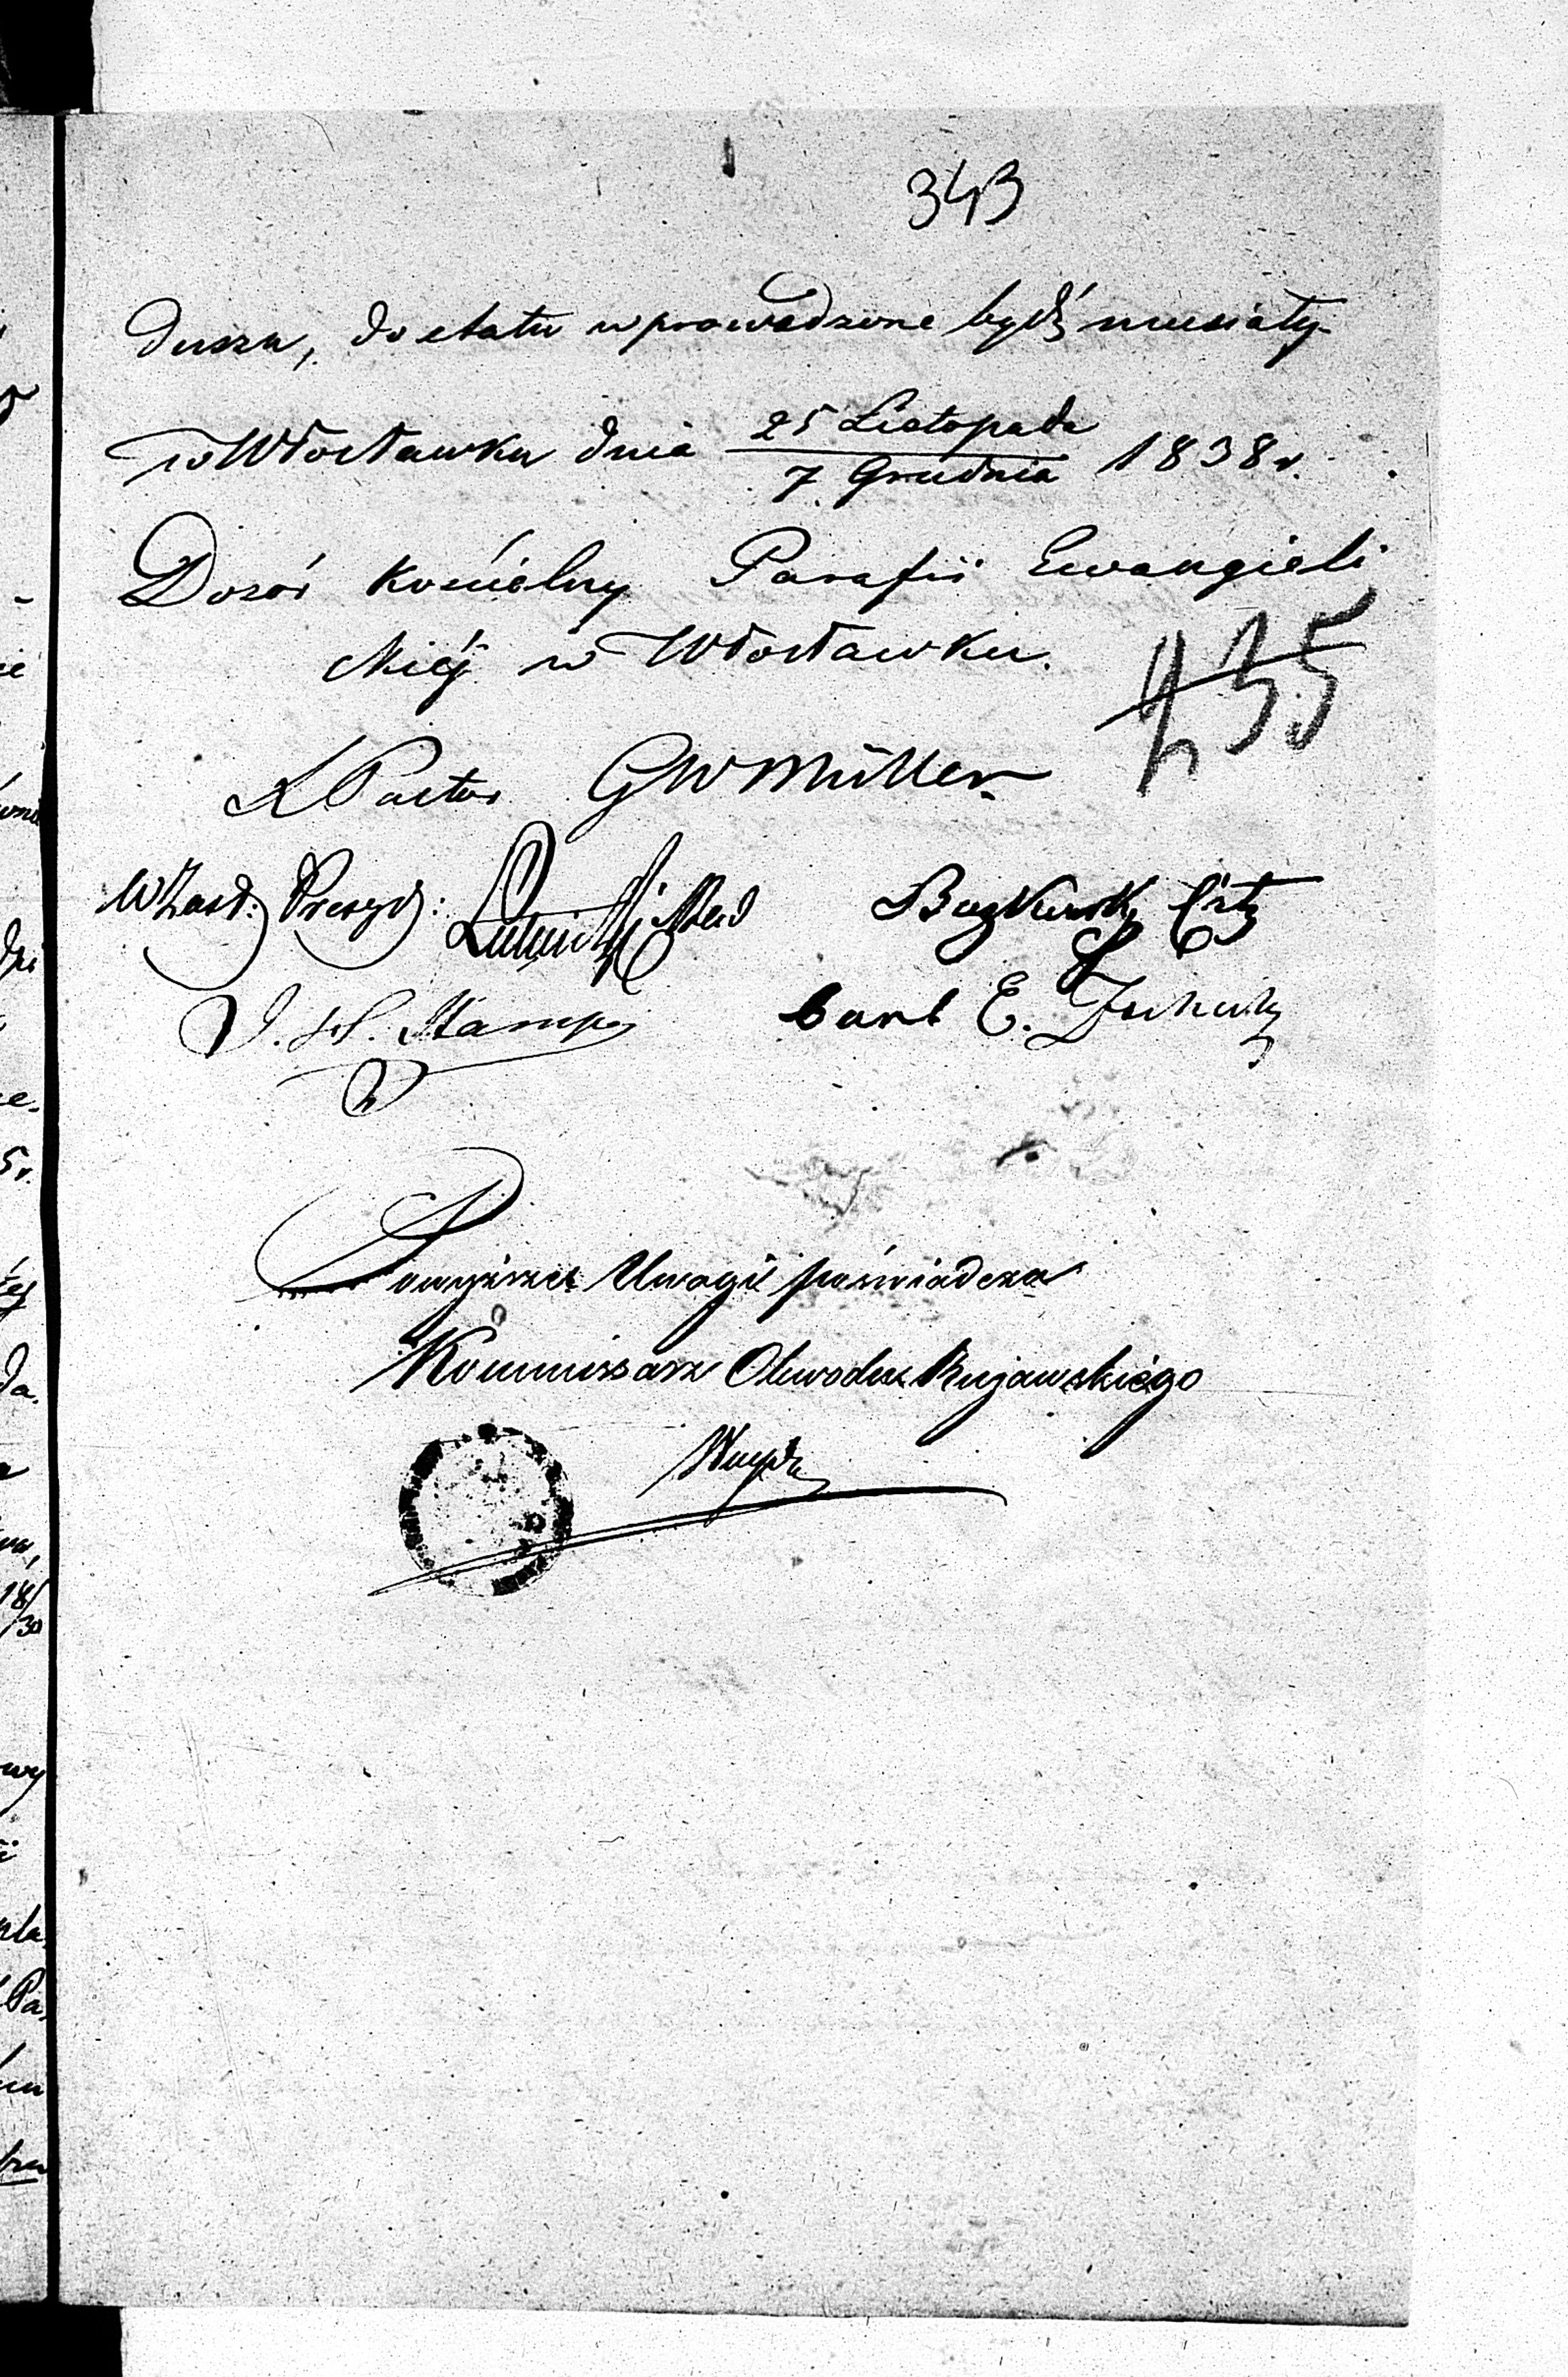 343
duszu, do etatu wprowadzone bydź musiały.
w Włocławku dnia 25 Listopada / 7 Grudnia 1838 r.
Dozór Kościelny Parafii Ewangieli
ckiéj w Włocławku.
435
X Pastor GW Müller
W Zast: Prezyd:
J. S. Stampe Carl E.
Powyższe Uwagi poświadcza
Kommissarz Obwodu Kujawskiego